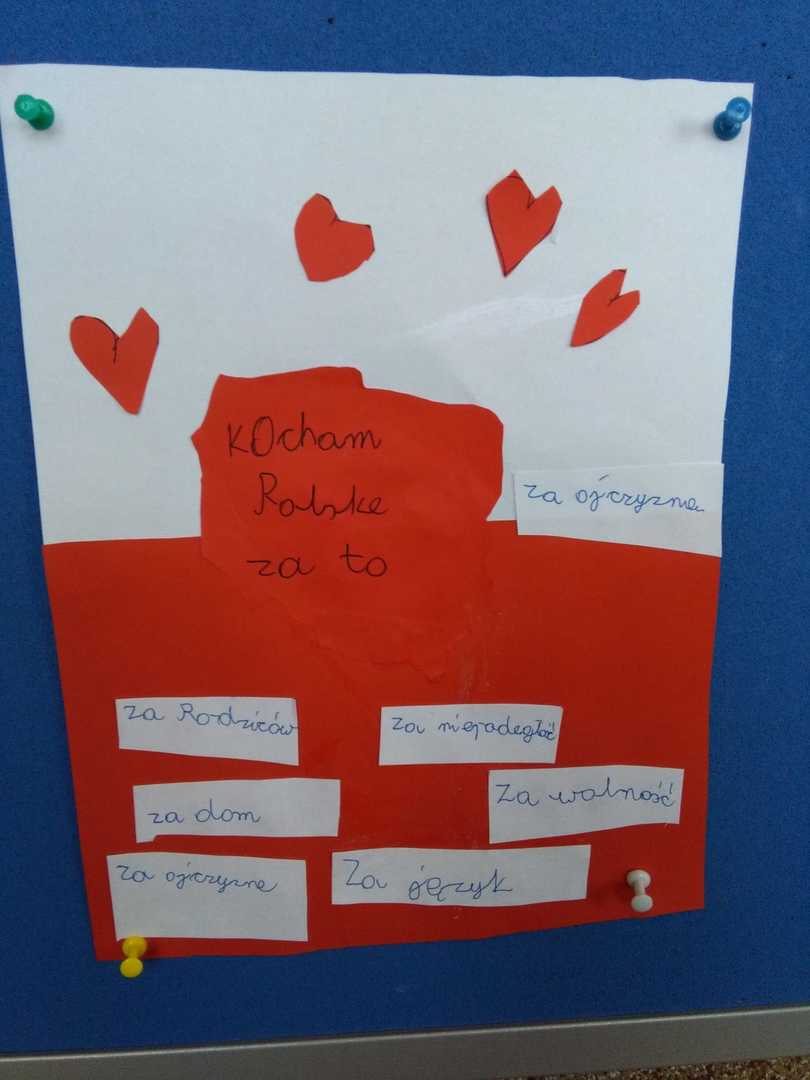 KOcham
Polske
za to
za ojczyzne
za Rodziców
za niepadegłość
za dom
Za wolność
za ojczyzne
Za język